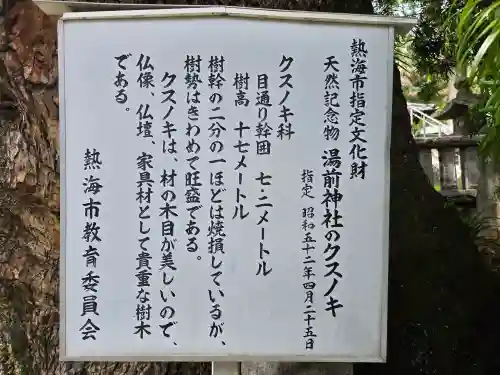 熱海市指定文化財
天然記念物 湯前神社のクスノキ
指定 昭和五十二年四月二十五日
クスノキ科
目通り幹囲 七・二メートル
樹高 十七メートル
樹幹の二分の一ほどは焼損しているが、
樹勢はきわめて旺盛である。
クスノキは、材の木目が美しいので、
仏像、仏壇、家具材として貴重な樹木
である。
熱海市教育委員会